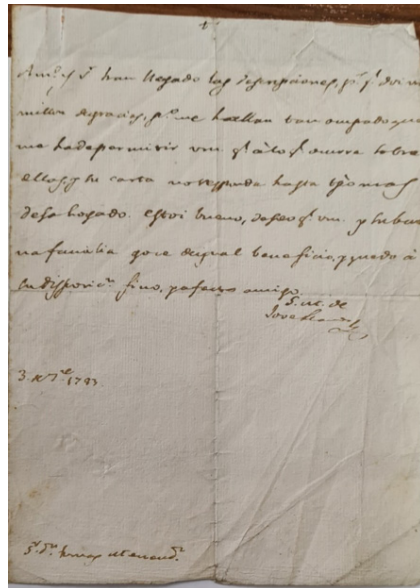 han llegado las descripciones, p.r q.e doi
mill.s de gracias, p.o me hallan tan ocupado, que
me ha de permitir vm. q.e a lo q.e ocurra sobre
ellas, y su carta no responda hasta tpo mas
desahogado. Estoi bueno, deseo q.e vm. y su bue
na familia goce de igual beneficio, y quedo à
su disposic.n fino, y afecto amigo
S. M. de
3.
1783
S.r D.n